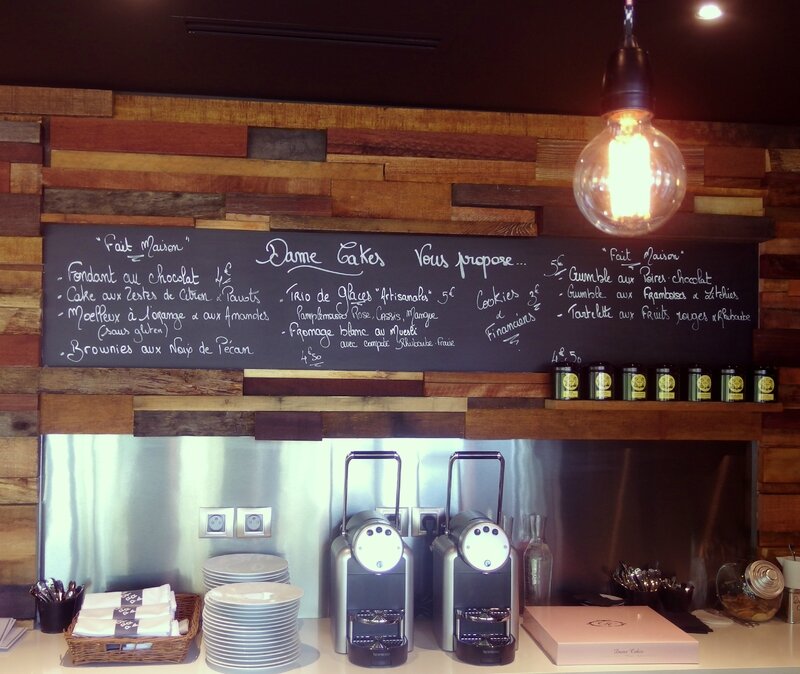 "Fait Maison"
- Fondant au chocolat 4€
- Cake aux Zestes de Citron & Pavots
- Moelleux à l'orange & aux Amandes
(sans gluten)
- Brownies aux Noix de Pécan
Dame Cakes Vous propose...
- Trio de glaces "Artisanales" 5€
Pamplemousse Rose, Cassis, Mangue
- Fromage blanc au Muesli
avec compote Rhubarbe Fraise
4€50
Cookies
&
Financiers
"Fait Maison"
- Crumble aux Poires-chocolat
- Crumble aux Framboises &
- Tartelette aux Fruits rouges & Rhubarbe
4€,50
Dame Cakes